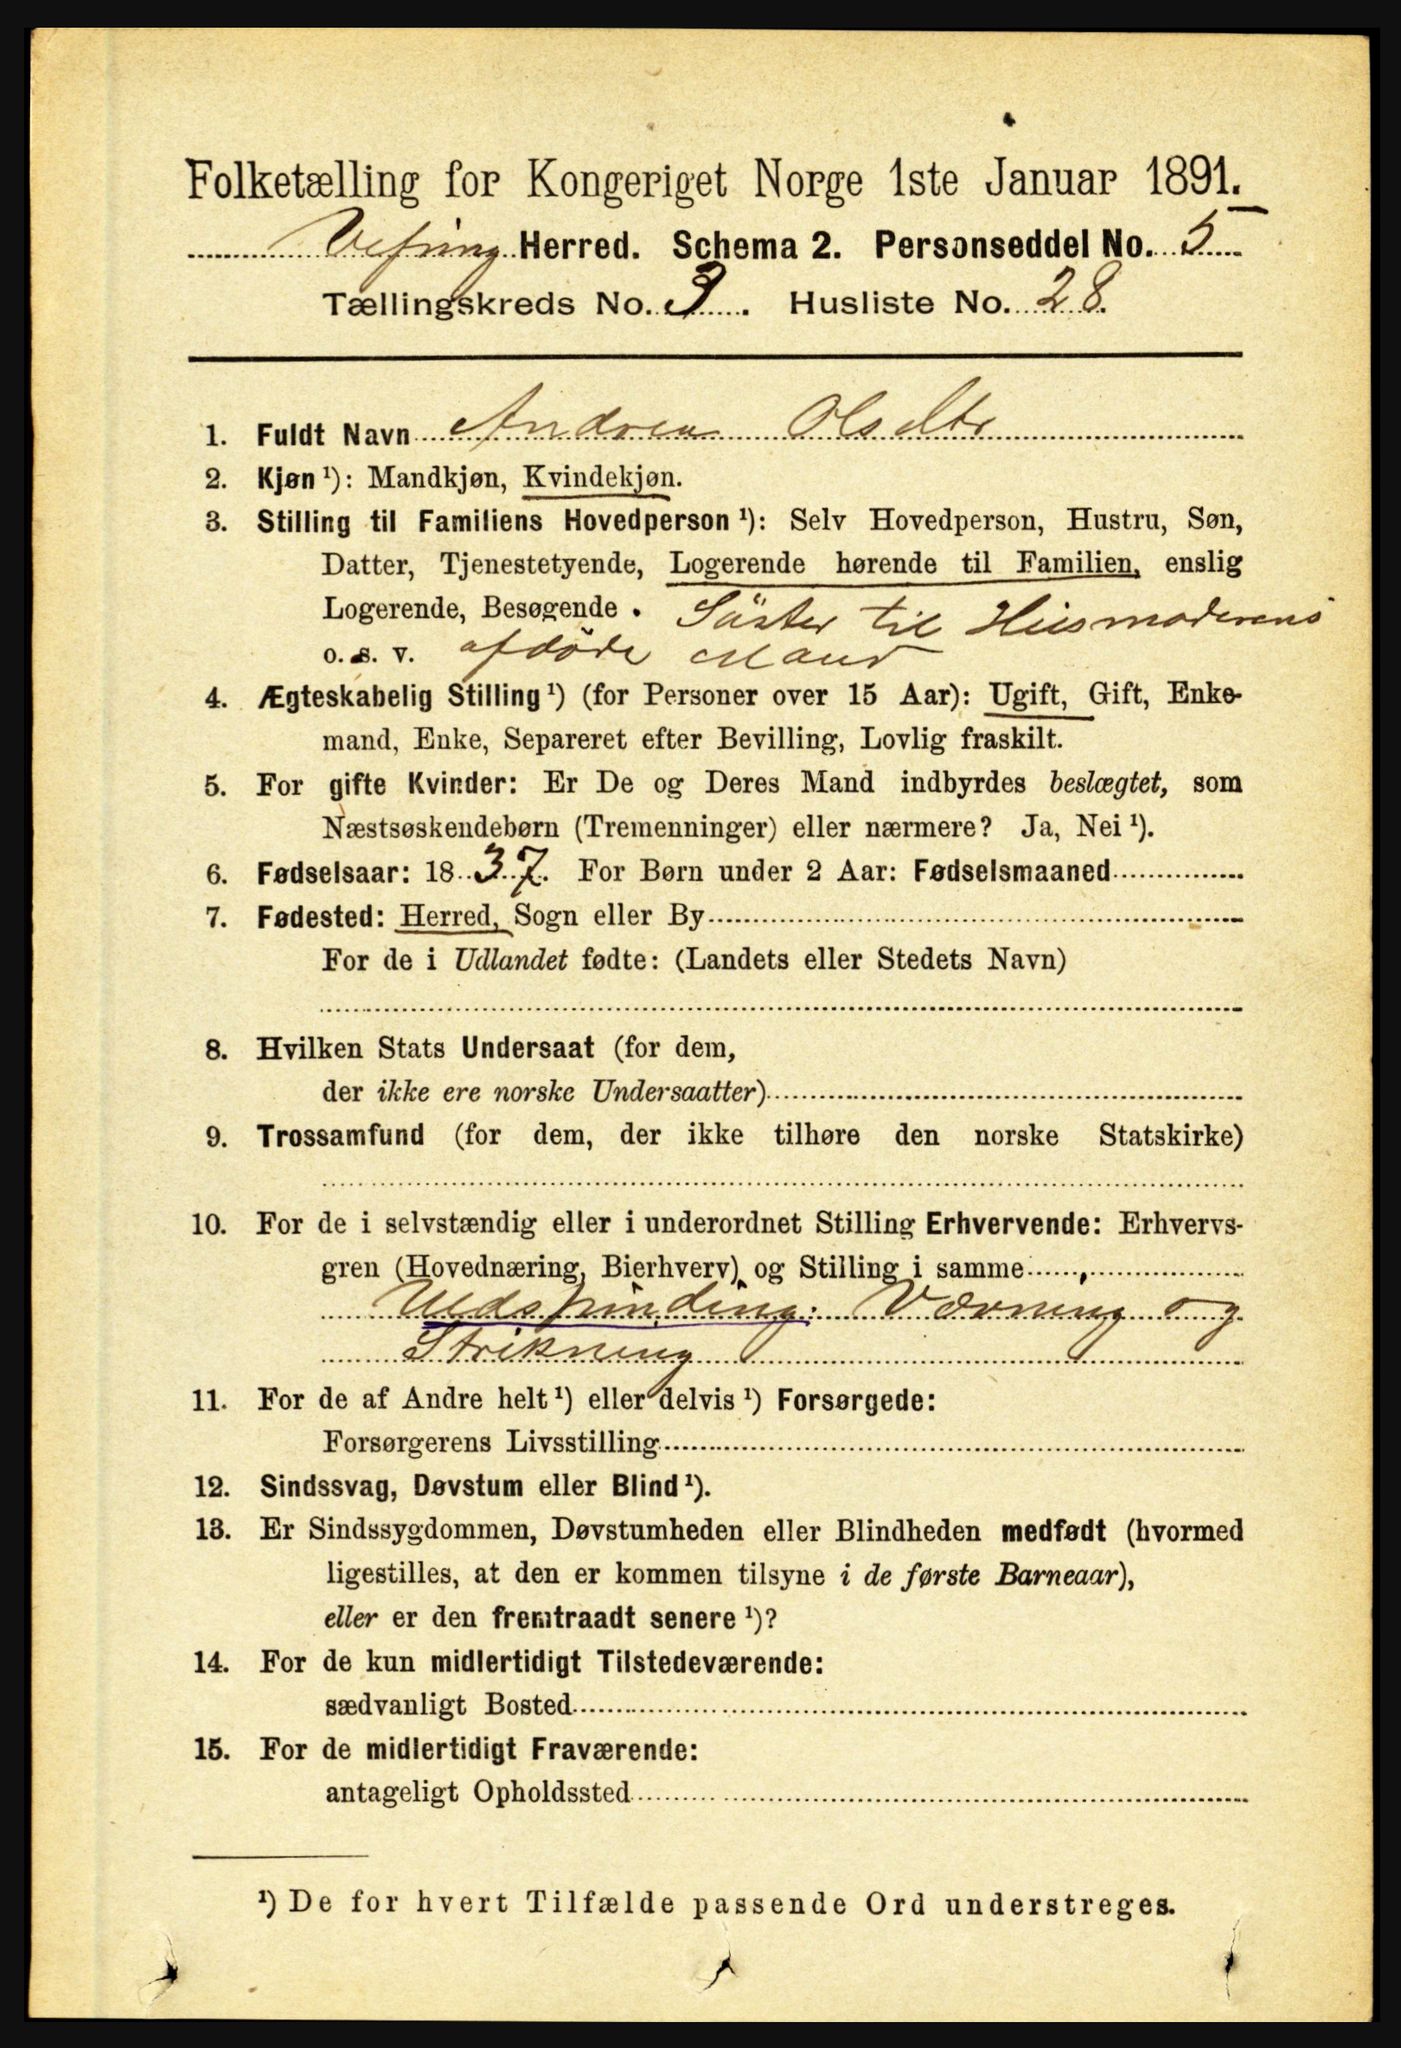 Folketælling for Kongeriget Norge 1ste Januar 1891.
Vefsning Herred. Schema 2. Personseddel No. 5
Tællingskreds No. 3. Husliste No. 28.
1. Fuldt Navn Andrea Olsdtr
2. Kjøn ¹): Mandkjøn, Kvindekjøn.
3. Stilling til Familiens Hovedperson ¹): Selv Hovedperson, Hustru, Søn,
Datter, Tjenestetyende, Logerende hørende til Familien, enslig
Logerende, Besøgende . Søster til Husmoderens
o. s. v. afdøde Mand
4. Ægteskabelig Stilling ¹) (for Personer over 15 Aar): Ugift, Gift, Enke-
mand, Enke, Separeret efter Bevilling, Lovlig fraskilt.
5. For gifte Kvinder: Er De og Deres Mand indbyrdes beslægtet, som
Næstsøskendebørn (Tremenninger) eller nærmere? Ja, Nei ¹).
6. Fødselsaar: 1837. For Børn under 2 Aar: Fødselsmaaned
7. Fødested: Herred, Sogn eller By
For de i Udlandet fødte: (Landets eller Stedets Navn)
8. Hvilken Stats Undersaat (for dem,
der ikke ere norske Undersaatter)
9. Trossamfund (for dem, der ikke tilhøre den norske Statskirke)
10. For de i selvstændig eller i underordnet Stilling Erhvervende: Erhvervs-
gren (Hovednæring, Bierhverv) og Stilling i samme
Uldspinding. Vævning og
Strikning
11. For de af Andre helt ¹) eller delvis ¹) Forsørgede:
Forsørgerens Livsstilling
12. Sindssvag, Døvstum eller Blind ¹).
13. Er Sindssygdommen, Døvstumheden eller Blindheden medfødt (hvormed
ligestilles, at den er kommen tilsyne i de første Barneaar),
eller er den fremtraadt senere ¹)?
14. For de kun midlertidigt Tilstedeværende:
sædvanligt Bosted
15. For de midlertidigt Fraværende:
antageligt Opholdssted
¹) De for hvert Tilfælde passende Ord understreges.